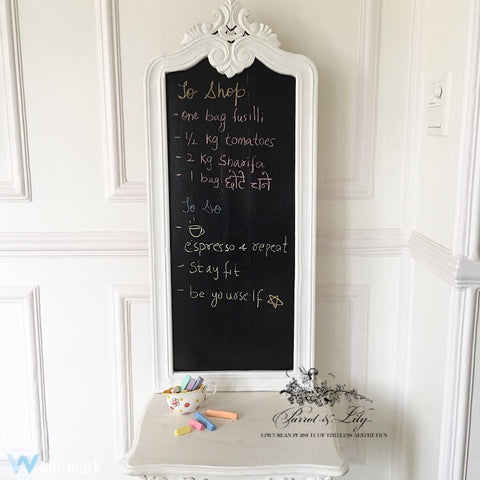 To Shop
- one bag fusilli
- 1/2 kg tomatoes
- 2 kg Sharifa
- 1 bag छोटे चने
To Do
-
espresso & repeat
- Stay fit
- be yourself
Parrot & Lily
EPICUREAN PERSUIT OF TIMELESS AESTHETICS
Watermark